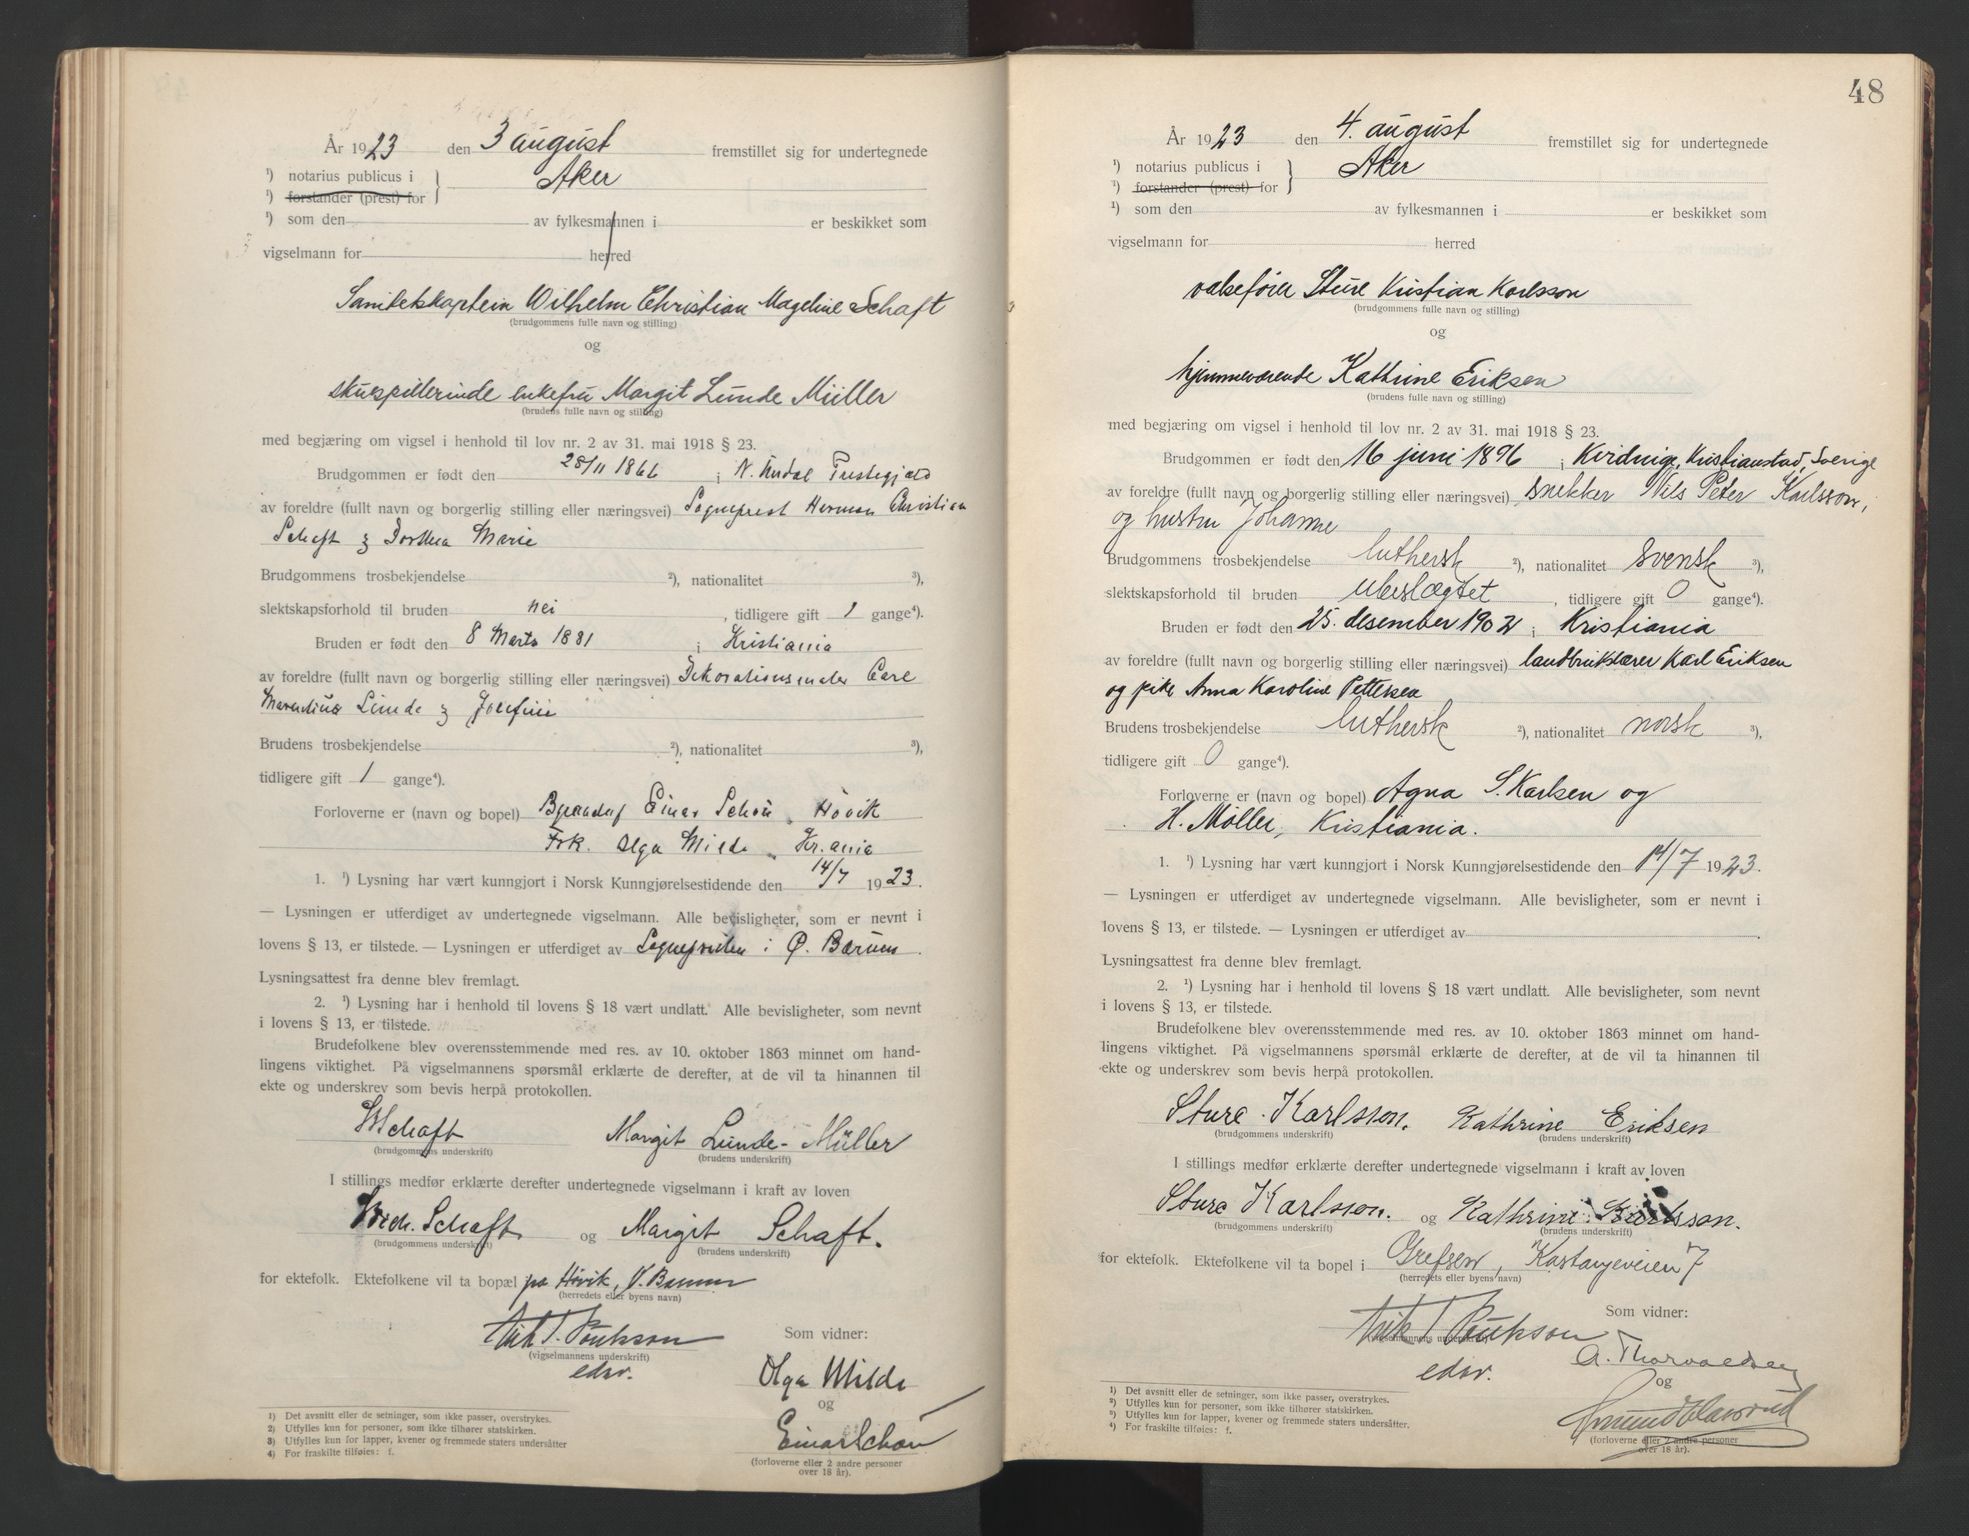 År 1923 den 3 august fremstillet sig for undertegnede
¹) notarius publicus i } Aker
¹) forstander (prest) for
¹) som den av fylkesmannen i er beskikket som
vigselmann for herred
Sanitetskaptein Wilhelm Christian Magelssen Schaft
(brudgommens fulle navn og stilling)
og
skuespillerinde enkefru Margit Lunde Müller
(brudens fulle navn og stilling)
med begjæring om vigsel i henhold til lov nr. 2 av 31. mai 1918 § 23.
Brudgommen er født den 28/11 1866 i N. Undal Prestegjeld
av foreldre (fullt navn og borgerlig stilling eller næringsvei) Sogneprest Herman Christian
Schaft og Dorthea Marie
Brudgommens trosbekjendelse ²), nationalitet ³),
slektskapsforhold til bruden nei, tidligere gift 1 gange⁴).
Bruden er født den 8 Marts 1881 i Kristiania
av foreldre (fullt navn og borgerlig stilling eller næringsvei) Dekorationsmaler Carl
Lunde og Josefine
Brudens trosbekjendelse ²), nationalitet ³),
tidligere gift 1 gange⁴).
Forloverne er (navn og bopel) Einar Schou, Høvik
Frk. Olga Milde, Kr.ania
1. ¹) Lysning har vært kunngjort i Norsk Kunngjørelsestidende den 14/7 1923.
— Lysningen er utferdiget av undertegnede vigselmann. Alle bevisligheter, som er nevnt i
lovens § 13, er tilstede. — Lysningen er utferdiget av Sognepresten i Ø. Bærum.
Lysningsattest fra denne blev fremlagt.
2. ¹) Lysning har i henhold til lovens § 18 vært undlatt. Alle bevisligheter, som nevnt
i lovens § 13, er tilstede.
Brudefolkene blev overensstemmende med res. av 10. oktober 1863 minnet om hand-
lingens viktighet. På vigselmannens spørsmål erklærte de derefter, at de vil ta hinannen til
ekte og underskrev som bevis herpå protokollen.
Schaft Margit Lunde-Müller
(brudgommens underskrift) (brudens underskrift)
I stillings medfør erklærte derefter undertegnede vigselmann i kraft av loven
Schaft og Margit Schaft.
(brudgommens underskrift) (brudens underskrift)
for ektefolk. Ektefolkene vil ta bopæl på Høvik, V. Bærum
(herredets eller byens navn)
Som vidner:
(vigselmannens underskrift)
edsv.
Olga Milde
og
Einar Schou
(forloverne eller 2 andre personer
over 18 år).
1) Det avsnitt eller de setninger, som ikke passer, overstrykes.
2) Utfylles kun for personer, som ikke tilhører statskirken.
3) Utfylles kun for lapper, kvener og fremmede staters undersåtter
4) For fraskilte tilføies: f.
48
År 1923 den 4. august fremstillet sig for undertegnede
¹) notarius publicus i } Aker
¹) forstander (prest) for
¹) som den av fylkesmannen i er beskikket som
vigselmann for herred
valsefører Sture Kristian Karlsson
(brudgommens fulle navn og stilling)
og
hjemmeværende Kathrine Eriksen
(brudens fulle navn og stilling)
med begjæring om vigsel i henhold til lov nr. 2 av 31. mai 1918 § 23.
Brudgommen er født den 16 juni 1896 i Kvidinge, Kristianstad, Sverige
av foreldre (fullt navn og borgerlig stilling eller næringsvei) snekker Nils Peter Karlsson,
og hustru Johanne
Brudgommens trosbekjendelse luthersk ²), nationalitet svensk ³),
slektskapsforhold til bruden ubeslægtet, tidligere gift 0 gange⁴).
Bruden er født den 25. desember 1902 i Kristiania
av foreldre (fullt navn og borgerlig stilling eller næringsvei) landbrukslærer Karl Eriksen
og pike Anna Karoline Pettersen
Brudens trosbekjendelse luthersk ²), nationalitet norsk ³),
tidligere gift 0 gange⁴).
Forloverne er (navn og bopel) Agna S. Karlsen og
H. Møller, Kristiania.
1. ¹) Lysning har vært kunngjort i Norsk Kunngjørelsestidende den 14/7 1923.
— Lysningen er utferdiget av undertegnede vigselmann. Alle bevisligheter, som er nevnt i
lovens § 13, er tilstede. — Lysningen er utferdiget av
Lysningsattest fra denne blev fremlagt.
2. ¹) Lysning har i henhold til lovens § 18 vært undlatt. Alle bevisligheter, som nevnt
i lovens § 13, er tilstede.
Brudefolkene blev overensstemmende med res. av 10. oktober 1863 minnet om hand-
lingens viktighet. På vigselmannens spørsmål erklærte de derefter, at de vil ta hinannen til
ekte og underskrev som bevis herpå protokollen.
Sture Karlsson. Kathrine Eriksen
(brudgommens underskrift) (brudens underskrift)
I stillings medfør erklærte derefter undertegnede vigselmann i kraft av loven
Sture Karlsson. og Kathrine Karlsson.
(brudgommens underskrift) (brudens underskrift)
for ektefolk. Ektefolkene vil ta bopel i Grefsen, Kastanjeveien 7
(herredets eller byens navn)
Som vidner:
(vigselmannens underskrift)
edsv.
A. Thorvaldsen
og
(forloverne eller 2 andre personer
over 18 år).
¹) Det avsnitt eller de setninger, som ikke passer, overstrykes.
²) Utfylles kun for personer, som ikke tilhører statskirken.
³) Utfylles kun for lapper, kvener og fremmede staters undersåtter.
⁴) For fraskilte tilføies: f.